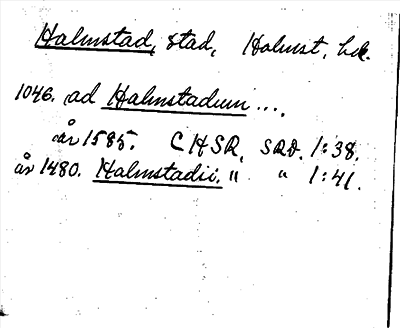 Halmstad, stad, Halmst. hd.
1046. ad Halmstadum ...
år 1585. CHSR, SRD. 1:38.
år 1480. Halmstadii. " " 1:41.